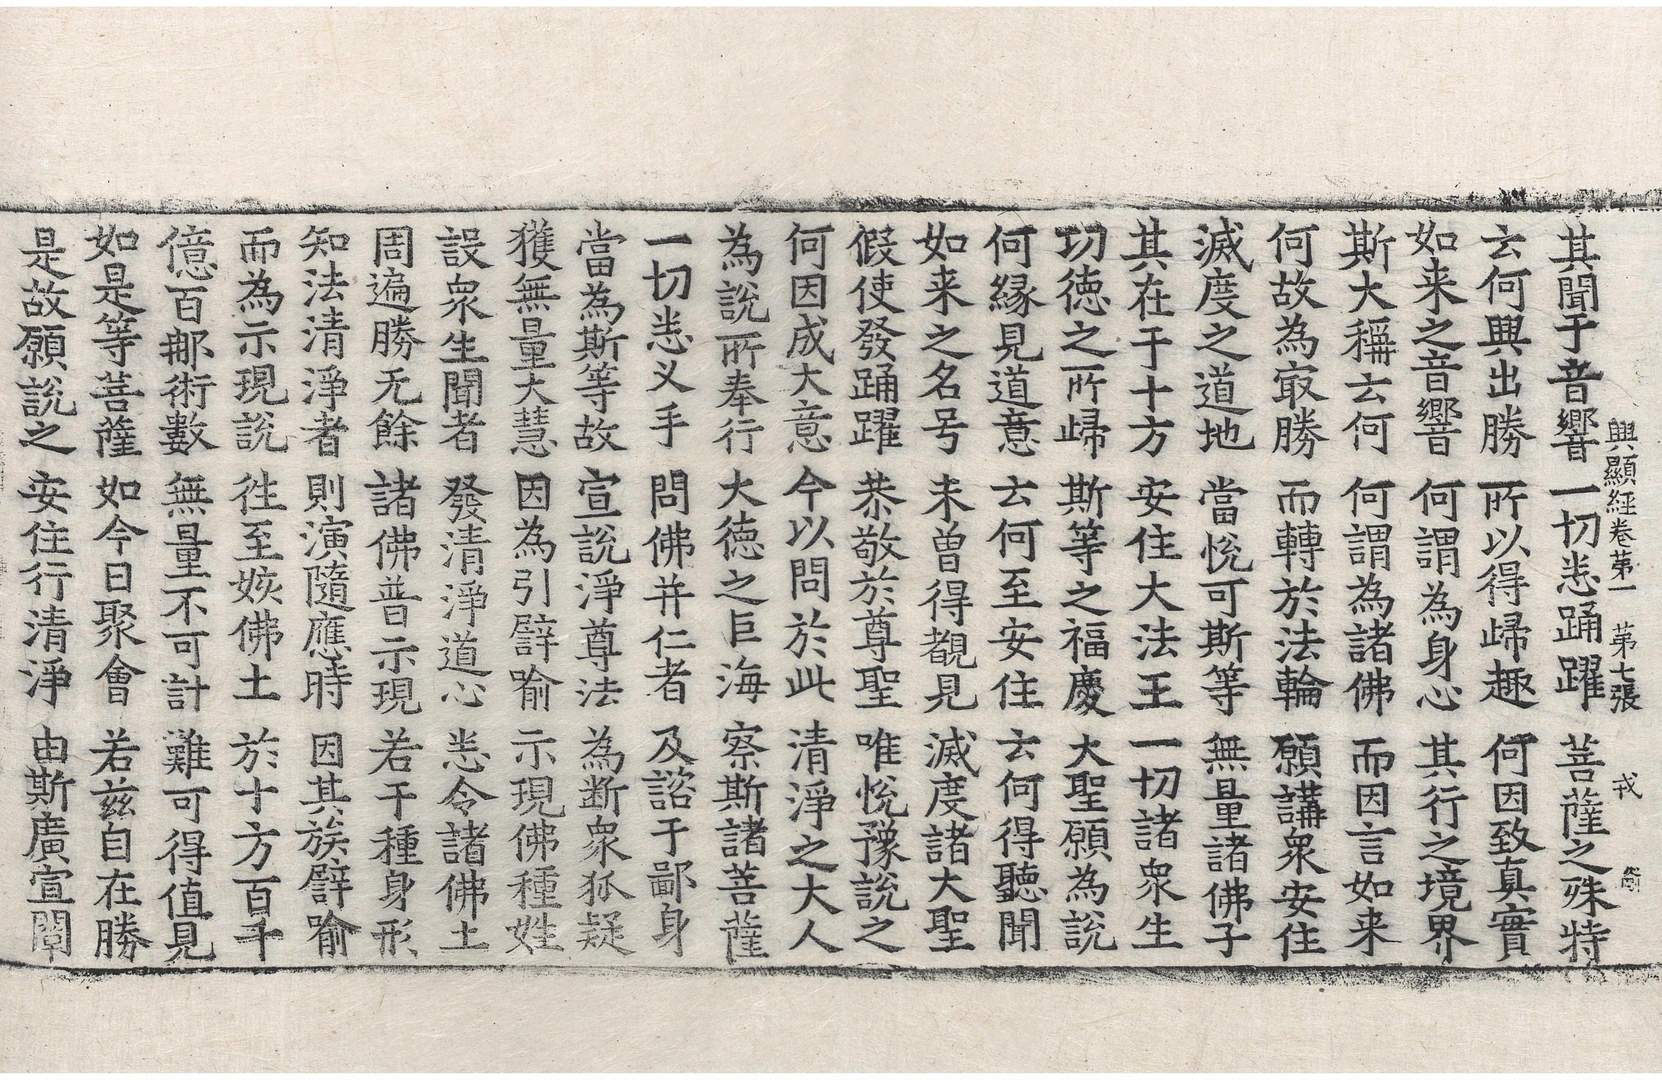 其聞于音響 一切悉踊躍 菩薩之殊特
興顯經卷第一 第七張 戎
云何興出勝 所以得歸趣 何因致真實
如来之音響 何謂為身心 其行之境界
斯大稱云何 何謂為諸佛 而因言如来
何故為㝡勝 而轉於法輪 願講衆安住
滅度之道地 當悅可斯等 無量諸佛子
其在于十方 安住大法王 一切諸衆生
功德之所歸 斯等之福慶 大聖願為說
何縁見道意 云何至安住 云何得聽聞
如来之名号 未曾得覩見 滅度諸大聖
假使發踊躍 恭敬於尊聖 唯悅豫說之
何因成大意 今以問於此 清淨之大人
為說所奉行 大德之巨海 察斯諸菩薩
一切悉叉手 問佛并仁者 及諮于鄙身
當為斯等故 宣說淨尊法 為断衆狐疑
獲無量大慧 因為引譬喻 示現佛種姓
設衆生聞者 發清淨道心 悉令諸佛土
周遍勝无餘 諸佛普示現 若干種身形
知法清淨者 則演隨應時 因其族譬喻
而為示現說 往至嫉佛土 於十方百千
億百那術數 無量不可計 難可得值見
如是等菩薩 如今日聚會 若兹自在勝
是故願說之 安住行清淨 由斯廣宣闡